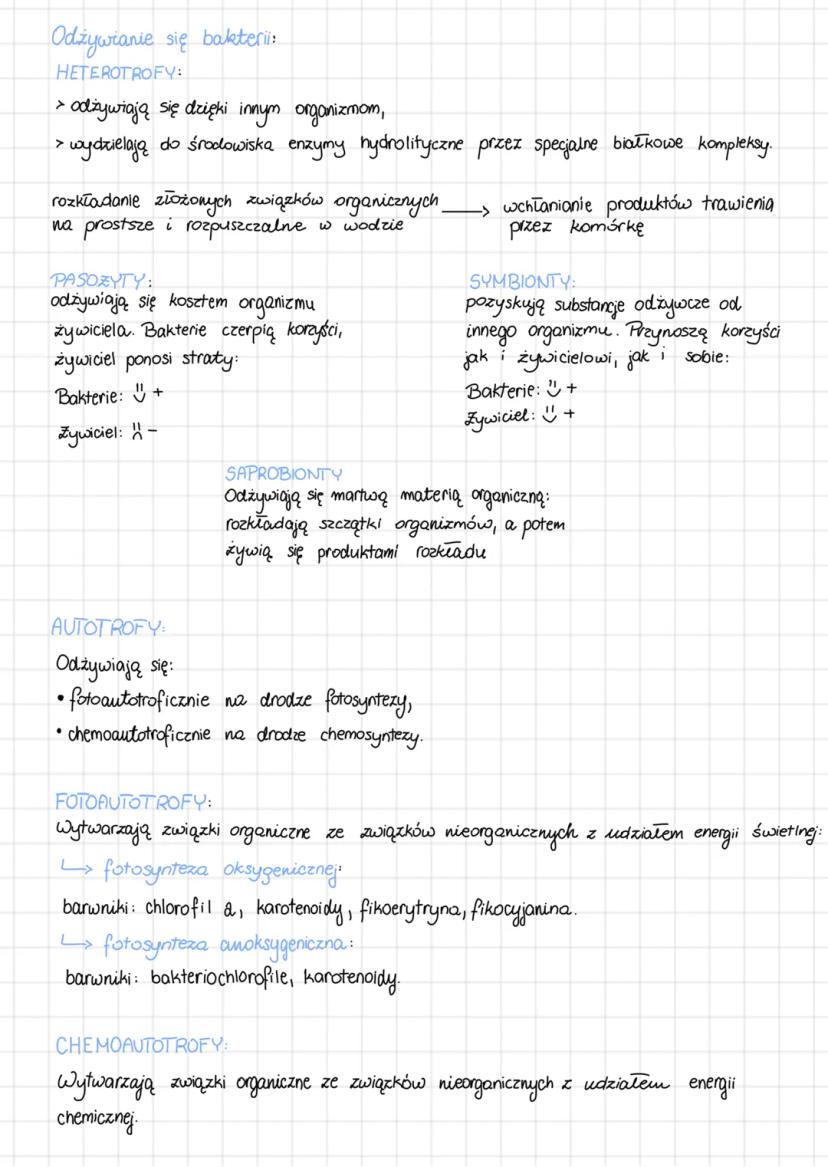 Odżywianie się bakterii:
HETEROTROFY:
> odżywiają się dzięki innym organizmom,
> wydzielają do środowiska enzymy hydrolityczne przez specjalne białkowe kompleksy.
rozkładanie złożonych związków organicznych → wchłanianie produktów trawienia
na prostsze i rozpuszczalne w wodzie
przez komórkę
PASOŻYTY:
odżywiają się kosztem organizmu
żywiciela. Bakterie czerpią korzyści,
żywiciel ponosi straty:
Bakterie: +
Żywiciel: -
SYMBIONTY:
pozyskują substancje odżywcze od
innego organizmu. Przynoszą korzyści
jak i żywicielowi, jak i sobie:
Bakterie: +
Żywiciel: +
SAPROBIONTY
Odżywiają się martwą materią organiczną:
rozkładają szczątki organizmów, a potem
żywią się produktami rozkładu
AUTOTROFY:
Odżywiają się:
• fotoautotroficznie na drodze fotosyntezy,
• chemoautotroficznie na drodze chemosyntezy.
FOTOAUTOTROFY:
Wytwarzają związki organiczne ze związków nieorganicznych z udziałem energii świetlnej:
↳ fotosynteza oksygenicznej:
barwniki: chlorofil a, karotenoidy, fikoerytryna, fikocyjanina.
↳ fotosynteza anoksygeniczna:
barwniki: bakteriochlorofile, karotenoidy.
CHEMOAUTOTROFY:
Wytwarzają związki organiczne ze związków nieorganicznych z udziałem energii
chemicznej.